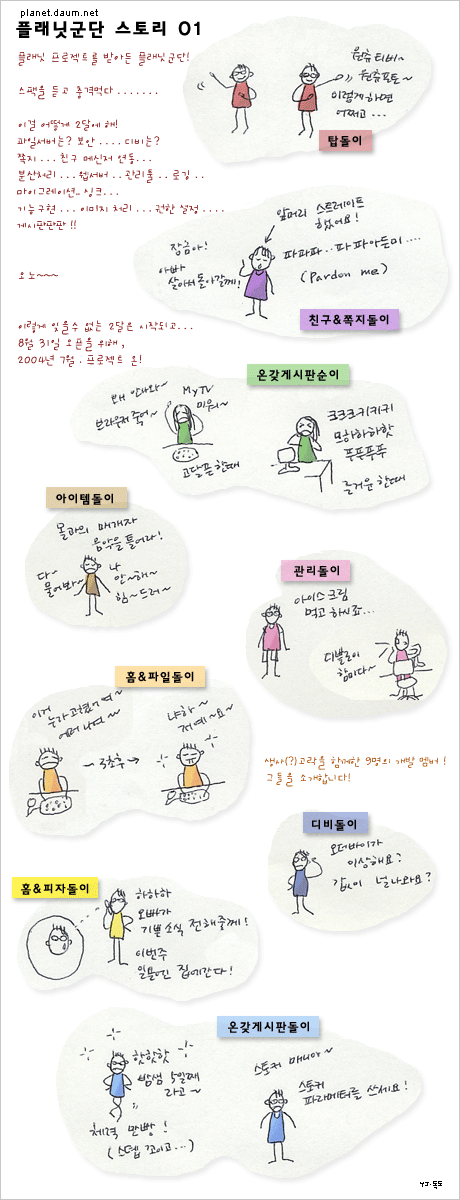 planet.daum.net
플래닛군단 스토리 01
플래닛 프로젝트를 받아든 플래닛군단!
스팩을 듣고 충격먹다.......
이걸 어떻게 2달에 해!
파일서버는? 보안.... 디비는?
쪽지... 친구 메신저 연동...
분산처리... 웹서버.. 관리툴.. 로깅..
마이그레이션.. 싱크...
기능구현... 이미지 처리... 권한 설정....
게시판판판!!
오노~~~
이렇게 있을수 없는 2달은 시작되고...
8월 31일 오픈을 위해,
2004년 7월. 프로젝트 온!
원츄티비~
원츄포토~
이렇게하면
어쩌고...
탑돌이
앞머리 스트레이트
했어요!
파파파..파파아든미....
(Pardon me)
장금아!
아빠
살아서돌아갈께!
친구&쪽지돌이
온갖게시판순이
왜 안나와~
브라우저죽어~
MyTV
미워~
고달픈한때
크크크키키키
므하하하핫
푸푸푸푸
즐거운 한때
아이템돌이
몰과의 매개자
음악을 틀어라!
다~
물어봐~
나
안~해~
힘~드러~
관리돌이
아이스크림
먹고 하시죠...
디블로이
함미다~
홈&파일돌이
이거
누가고쳤어~
~3초후→
냐하~
저예~요~
생사(?)고락을 함께한 9명의 개발 멤버!
그들을 소개합니다!
디비돌이
오더바이가
이상해요?
값이 널나와요?
홈&피자돌이
하하하
오빠가
기쁜소식 전해줄께!
이번주
일욜엔 집에간다!
온갖게시판돌이
핫핫핫
밤샘 5일째
라고~
체력 만빵!
(스뎁 꼬이고...)
스토커 매니아~
스토커
파라메터를 쓰세요!
YJ.독도